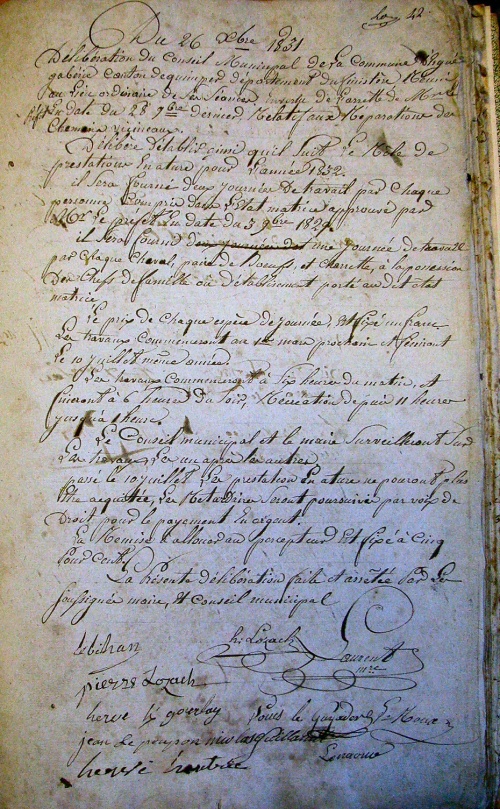 42
Du 26 Xbre 1831
Déliberation du Conseil Municipal de la Commune d'Ergué
gabéric canton de quimper département du finistère Réunie
au lieu ordinaire de ses Séances
En date du 28 9bre dernier Relatif aux Réparations des
Chemins vicinaux.
Délibère Etablis ainsi qu'il suit le Rôle de
prestations En nature pour l'année 1832.
il sera fourni deux journées De travail par chaque
personne Comprise dans l'Etat matrice approuvé par
Mr le préfet En date du 3 9bre 1829.
il sera fourni une journée de travail
par Chaque Cheval, paire de Bœufs, et Charrette, à la possession
Des Chefs de famille ou d'établissement porté au dit état
matrice.
Le prix de Chaque espèce de journée, Est fixé un franc
Les travaux Commenceront au 1er mars prochain et finiront
le 10 juillet même année.
Les travaux Commenceront à Six heures du matin, et
finiront à 6 heures du soir, Récréation depuis 11 heures
jusqu'à 1 heure.
Le Conseil municipal et le maire Surveilleront
Les travaux, Les uns après les autres
passé le 10 juillet Les prestation En nature ne pouront plus
Etre acquittée, Les Retardaires Seront poursuivies par voix de
Droit pour le payement En argent.
La Remise à allouer au percepteur Est fixé à Cinq
pour Cent.
La Présente délibération faite et arrêtée Par Les
soussignés maire, Et Conseil municipal
le bihan
h. Lozach
Laurent
mre
pierre Lozach
herve le gouerlay
Louis le
jean le